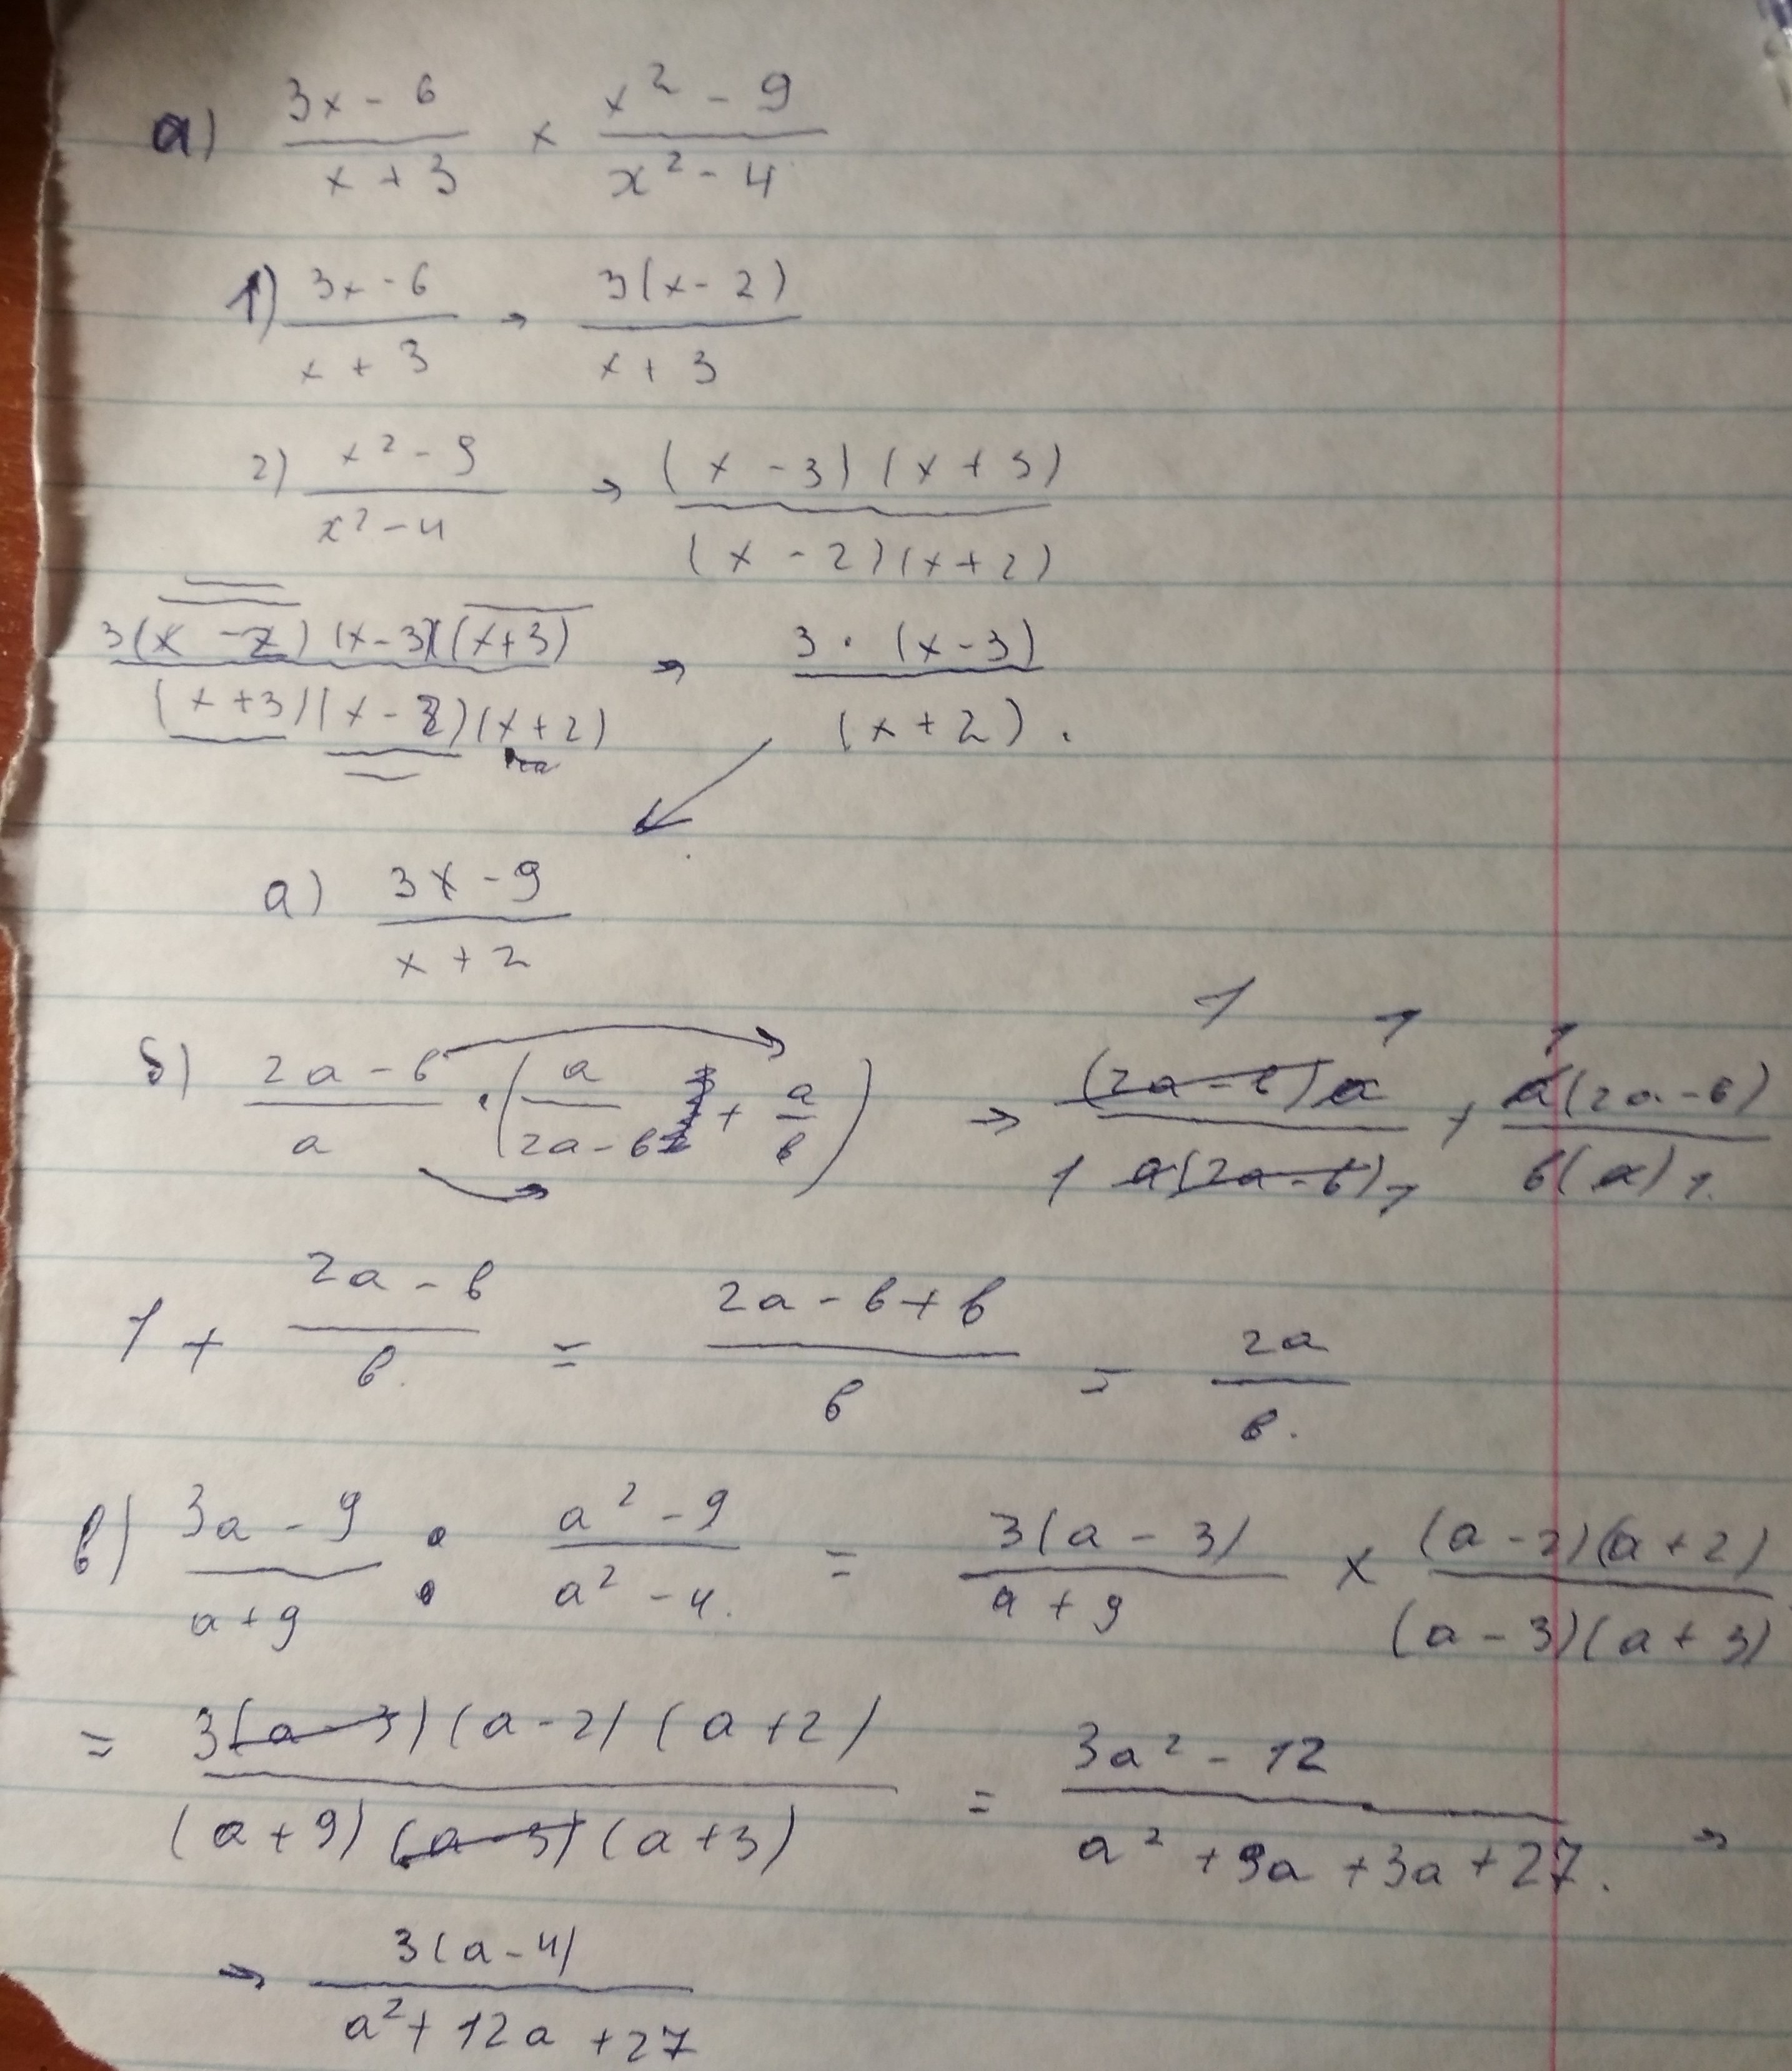 а) (3x - 6)/(x + 3) × (x² - 9)/(x² - 4)
1) (3x - 6)/(x + 3) → 3(x - 2)/(x + 3)
2) (x² - 9)/(x² - 4) → (x - 3)(x + 3)/(x - 2)(x + 2)
3(x - 2)(x - 3)(x + 3)/(x + 3)(x - 2)(x + 2) → 3 · (x - 3)/(x + 2).
а) (3x - 9)/(x + 2)
б) (2a - в)/a · (a/(2a - в) + a/в) → (2a - в)a/a(2a - в) + a(2a - в)/в(a)
1 + (2a - в)/в = (2a - в + в)/в = 2a/в.
в) (3a - 9)/(a + 9) : (a² - 9)/(a² - 4) = 3(a - 3)/(a + 9) × (a - 2)(a + 2)/(a - 3)(a + 3)
= 3(a - 3)(a - 2)(a + 2)/(a + 9)(a - 3)(a + 3) = (3a² - 12)/(a² + 9a + 3a + 27). →
→ 3(a - 4)/(a² + 12a + 27)